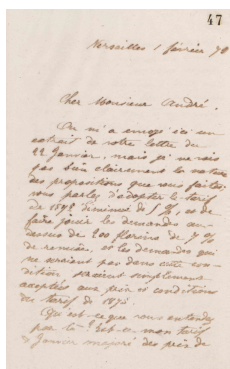 47
Versailles 1 février 78
Cher Monsieur André.
On m'a envoyé ici un
extrait de votre lettre du
22 Janvier, mais je ne vois
pas bien clairement la nature
des propositions que vous faites;
vous parlez d'adopter le tarif
de 1872 diminué de 5 %, et de
faire jouir les demandes au-
dessus de 200 florins de
de remise, et les demandes qui
ne seraient pas dans cette con-
dition seraient simplement
acceptées aux prix et conditions
du tarif de 1875.
Qu'est-ce que vous entendez
par là? Est-ce mon tarif
Janvier majoré des prix de